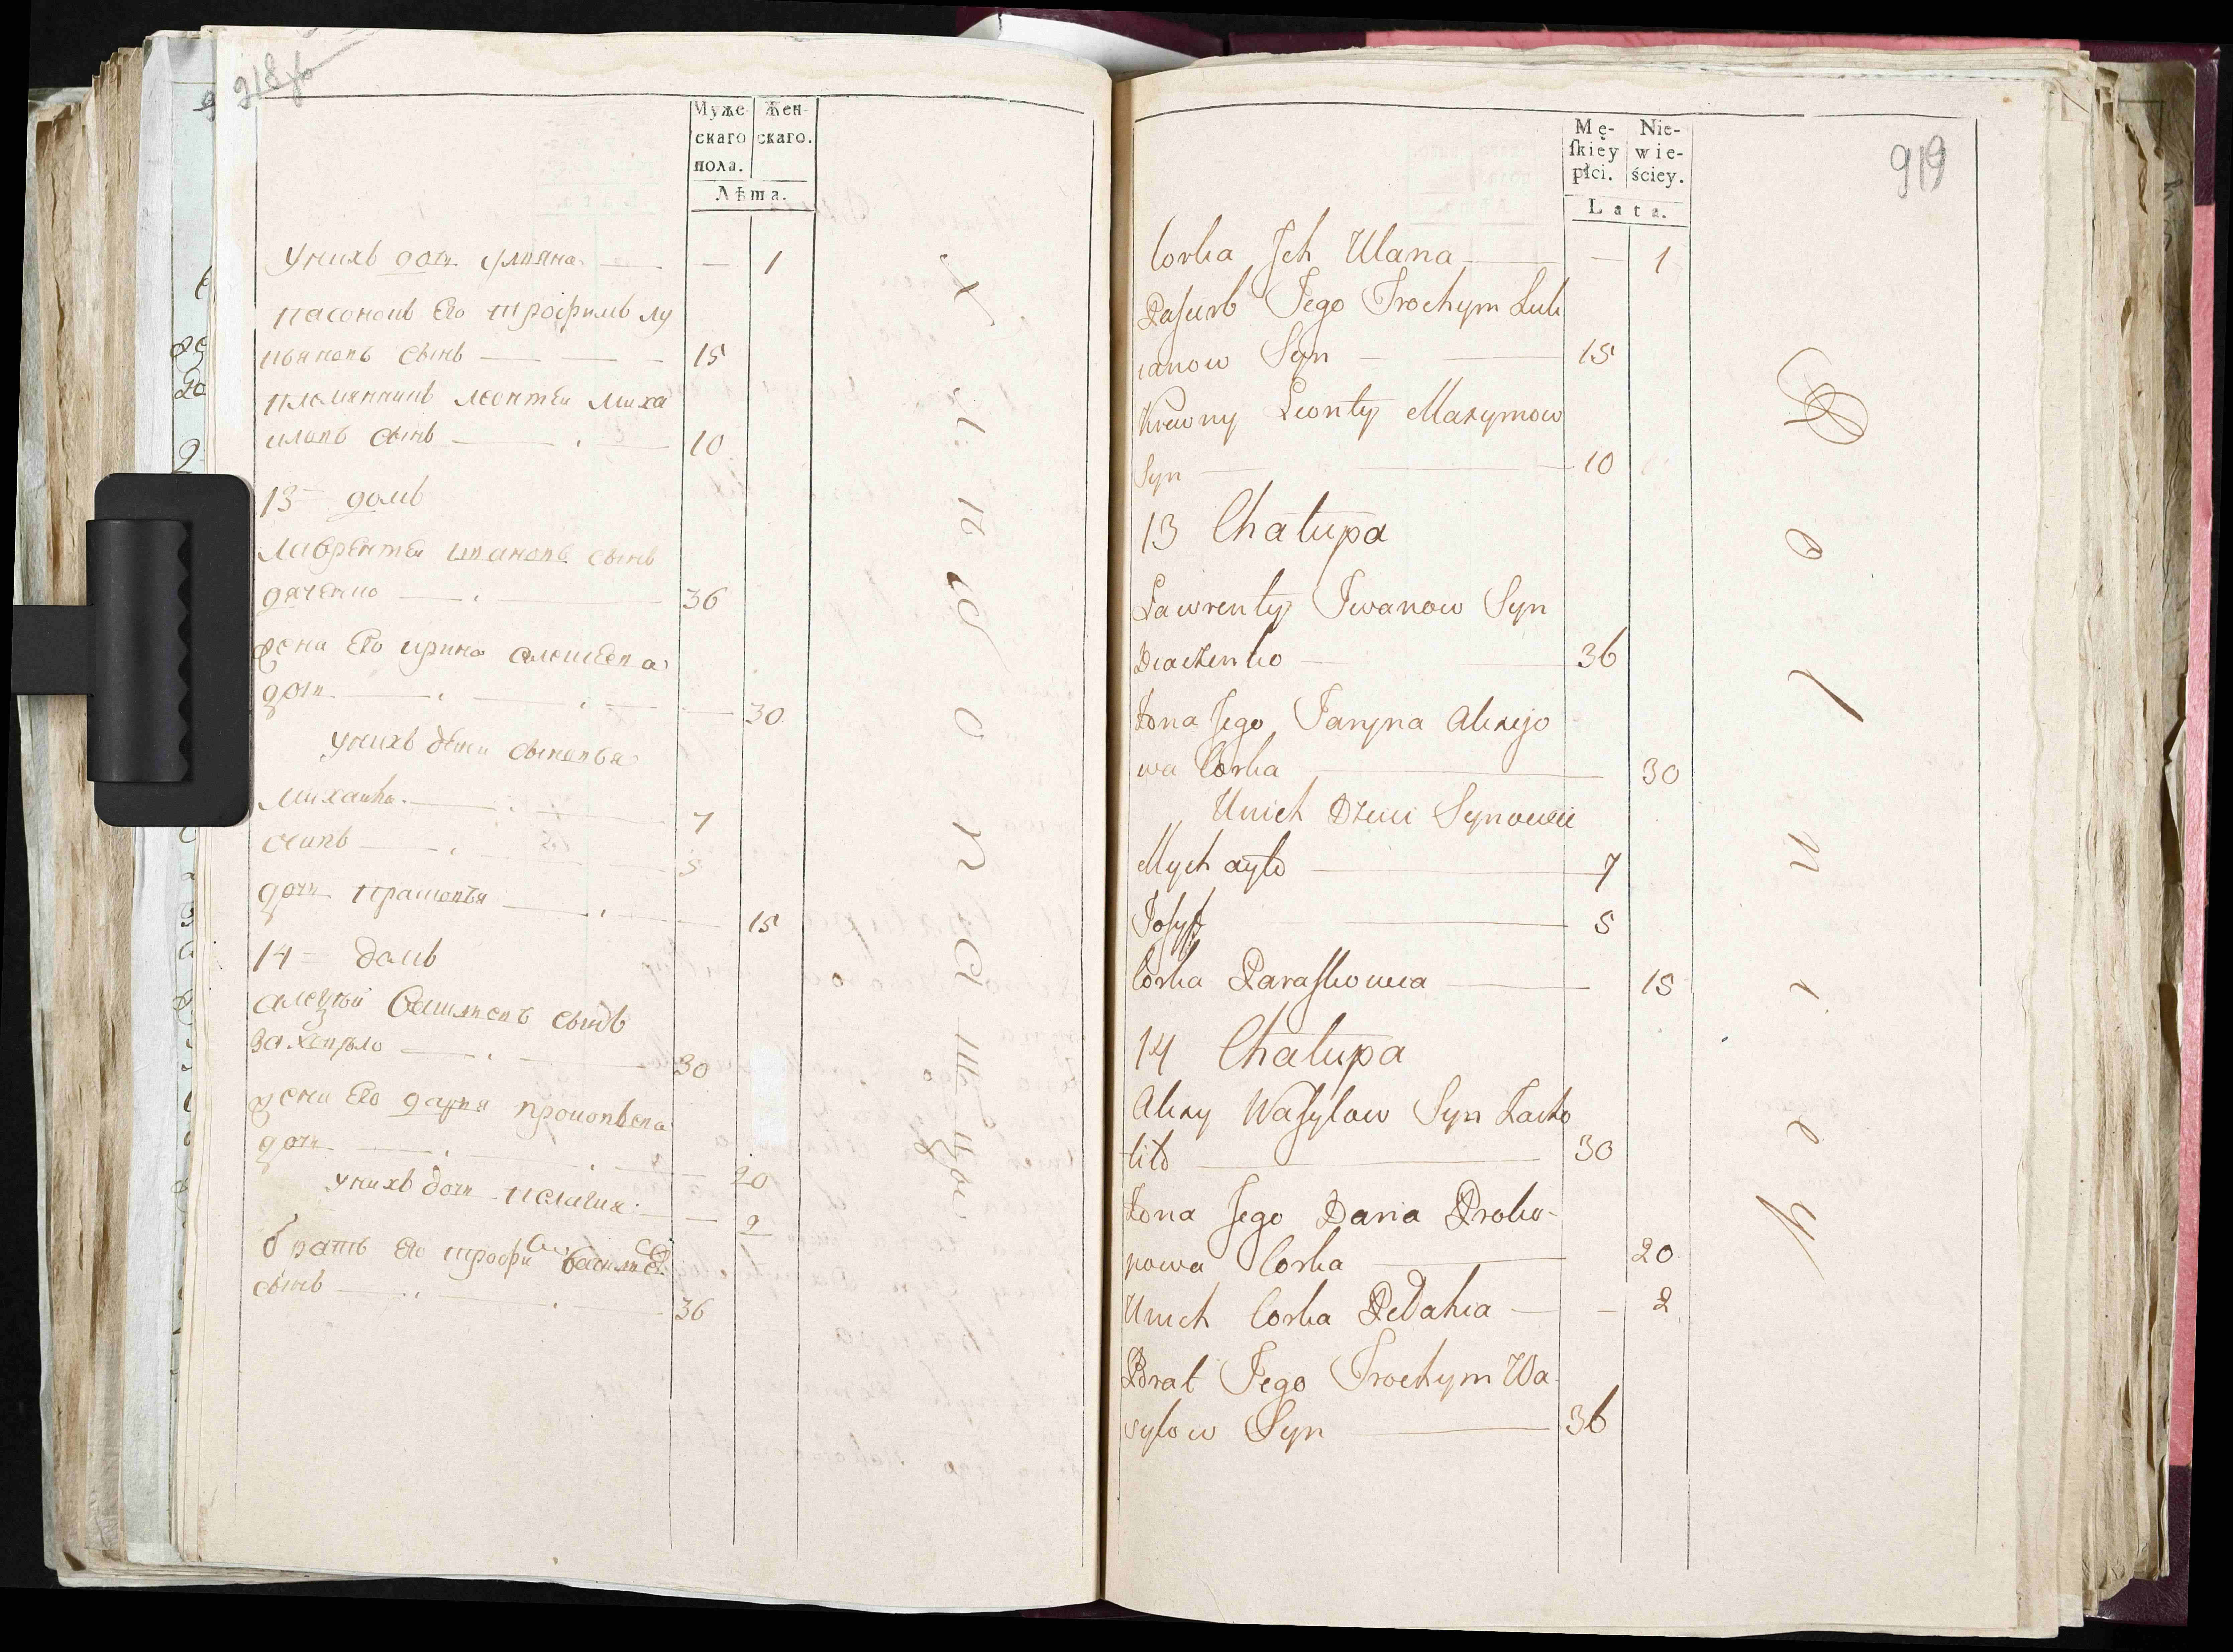 918 об
Муже- Жен-
скаго скаго.
пола.
Лѣта.
Унихъ дочь Ульяна — — 1
пасонокъ Его трофимъ лу
кьяновъ сынъ — — 15
племянникъ леонтеи миха
иловъ сынъ — 10
13 домъ
лаврентеи ивановъ сынъ
дяченко — 36
жена Его ирина алексеева
дочь — — 30
унихъ дети сыновья
михаила — 7
осипъ — 5
дочь прасковья — 15
14 = домъ
алексеи васильевъ сынъ
30
жена Его дарья прокопьева
дочь — — 20
унихъ дочь пелагия — — 2
братъ Его трофимъ васильевъ
сынъ — 36
919
Mę- Nie-
ſkiey wie-
płci. ściey.
Lata.
Corka Jch Ulana — — 1
Paſurb Jego Trochym Luk
ianow Syn — — 15
Krewny Leonty Maxymow
Syn — — 10
13 Chałupa
Ławrenty Jwanow Syn
Diaczenko — 36
Żona Jego Jaryna Alexijo
wa Corka — 30
Unich Dzieci Synowie
Mychayło — 7
Joſyf — 5
Corka Paraſkowia — 15
14 Chałupa
Alexy Waſylow Syn
30
Żona Jego Daria Proko-
powa Corka — 20
Unich Corka Pelahia — — 2
Brat Jego Trochym Wa
sylow Syn — 36